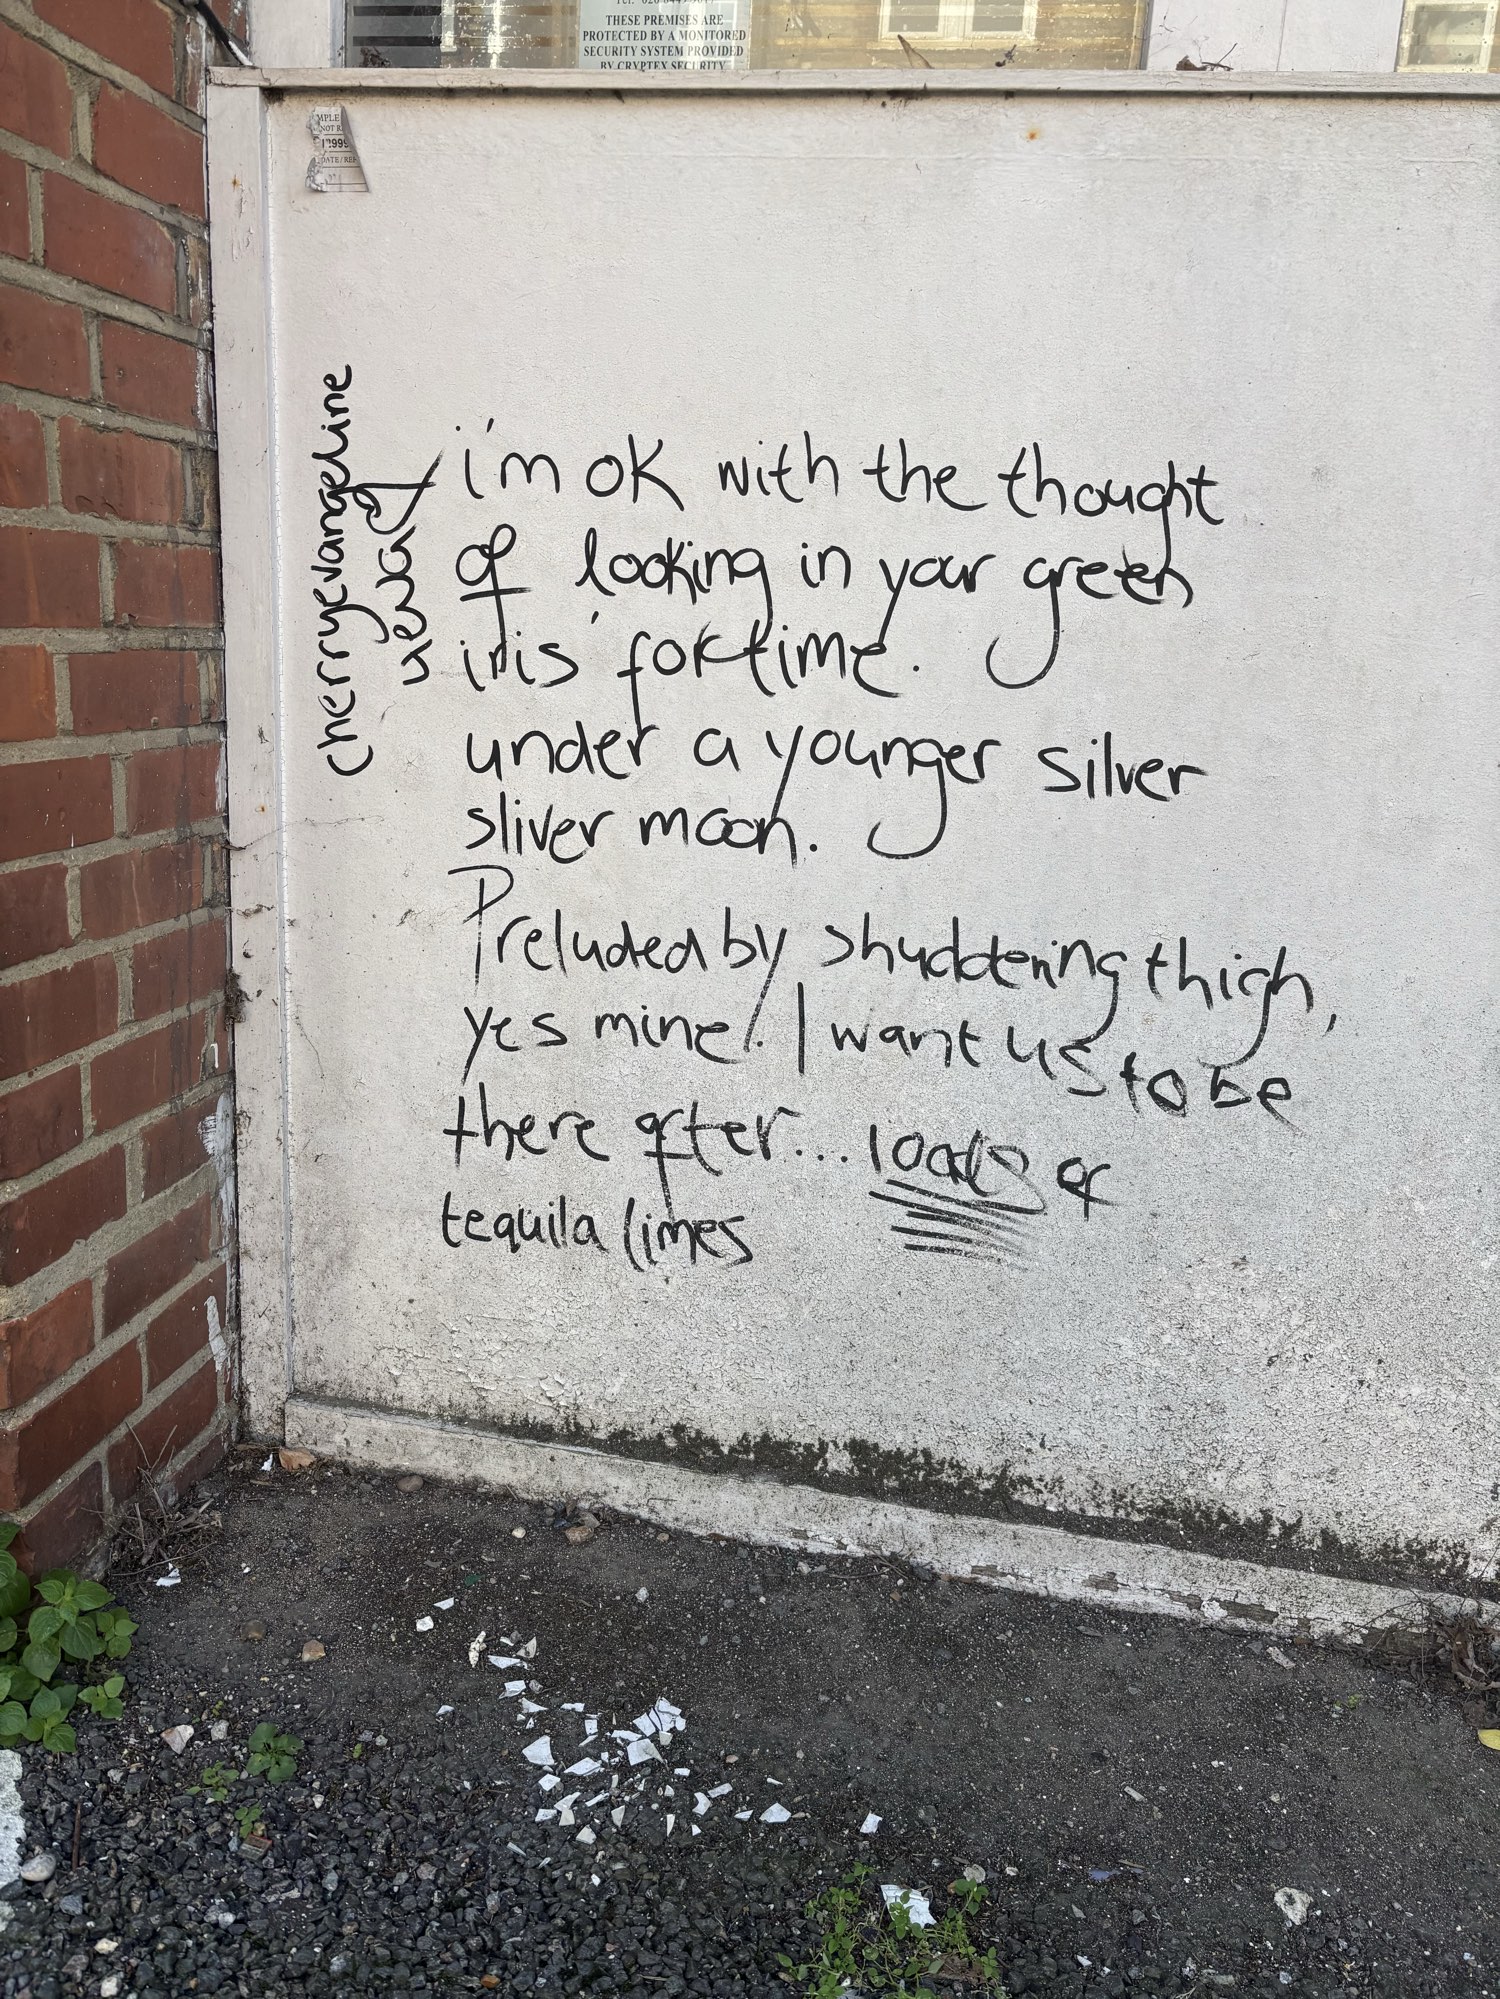 THESE PREMISES ARE
PROTECTED BY A MONITORED
SECURITY SYSTEM PROVIDED
BY CRYPTEX SECURITY
cherryevangeline
i'm ok with the thought
of looking in your green
iris' for time.
under a younger silver
sliver moon.
Preluded by shuddering thigh,
yes mine! I want us to be
there after... loads of
tequila limes